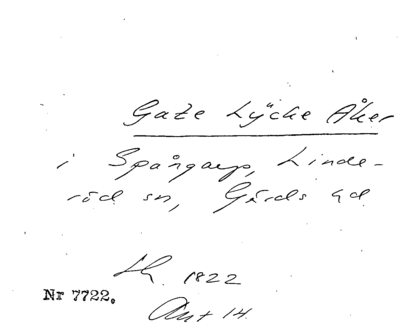 Gate Lÿcke Åker
i Spångarp, Linde-
röd sn, Gärds hd.
Lh. 1822
Nr 7722.
Akt 14.